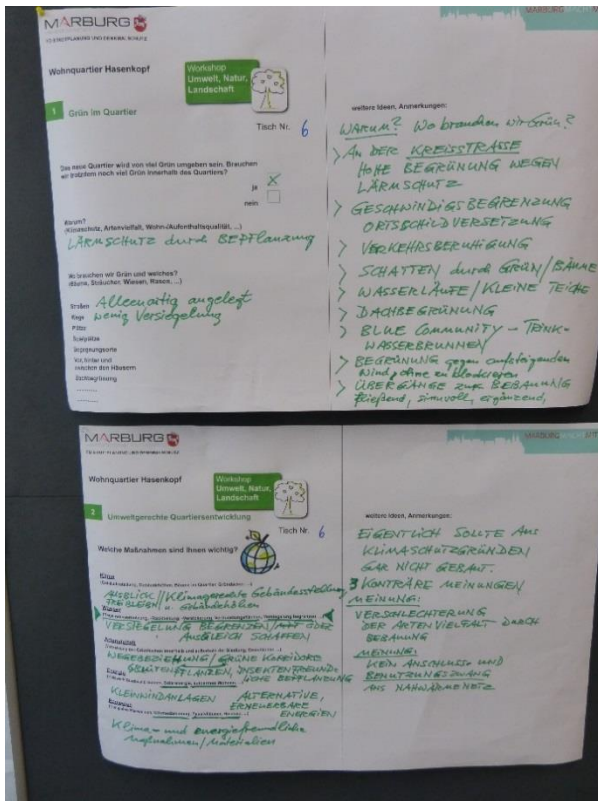 MARBURG
Wohnquartier Hasenkopf
Workshop
Umwelt, Natur,
Landschaft
1 Grün im Quartier
Tisch Nr. 6
Das neue Quartier wird von viel Grün umgeben sein. Brauchen
wir trotzdem noch viel Grün innerhalb des Quartiers?
ja X
nein
Warum?
(Klimaschutz, Artenvielfalt, Wohn-/Aufenthaltsqualität, ...)
LÄRMSCHUTZ durch BEPFLANZUNG
Wo brauchen wir Grün und welches?
(Bäume, Sträucher, Wiesen, Rasen, ...)
Straßen Alleenartig angelegt
Wege wenig Versiegelung
Plätze
Spielplätze
Begegnungsorte
Vor, hinter und
zwischen den Häusern
Dachbegrünung
weitere Ideen, Anmerkungen:
WARUM? Wo brauchen wir Grün?
> AN DER KREISSTRASSE
HOHE BEGRÜNUNG WEGEN
LÄRMSCHUTZ
> GESCHWINDIGSBEGRENZUNG
ORTSSCHILDVERSETZUNG
> VERKEHRSBERUHIGUNG
> SCHATTEN durch GRÜN/BÄUME
> WASSERLÄUFE/KLEINE TEICHE
> DACHBEGRÜNUNG
> BLUE COMMUNITY - TRINK-
WASSERBRUNNEN
> BEGRÜNUNG gegen aufsteigenden
Wind, ohne zu blockieren
> ÜBERGÄNGE zur BEBAUUNG
fließend, sinnvoll, ergänzend,
MARBURG
Wohnquartier Hasenkopf
Workshop
Umwelt, Natur,
Landschaft
2 Umweltgerechte Quartiersentwicklung
Tisch Nr. 6
Welche Maßnahmen sind Ihnen wichtig?
Klima
AUSBLICK // Klimagerechte Gebäudestellung
FREIBLEIBEN u. Gebäudehöhen
Wasser
VERSIEGELUNG BEGRENZEN / ODER
AUSGLEICH SCHAFFEN
WEGEBEZIEHUNG / GRÜNE KORRIDORE
BLÜTENPFLANZEN, INSEKTENFREUND-
LICHE BEPFLANZUNG
KLEINWINDANLAGEN ALTERNATIVE,
ERNEUERBARE
ENERGIEN
Klima- und energiefreundliche
Maßnahmen/Materialien
weitere Ideen, Anmerkungen:
EIGENTLICH SOLLTE AUS
KLIMASCHUTZGRÜNDEN
GAR NICHT GEBAUT.
3 KONTRÄRE MEINUNGEN
MEINUNG:
VERSCHLECHTERUNG
DER ARTENVIELFALT DURCH
BEBAUUNG
MEINUNG:
KEIN ANSCHLUSS- UND
BENUTZUNGSZWANG
AUS NAHWÄRMENETZ